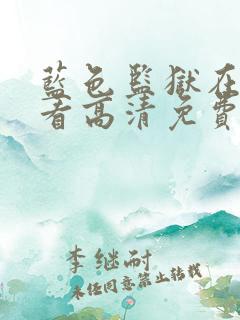 藍色監獄在
看高清免費
李继耐
未经同意禁止转载